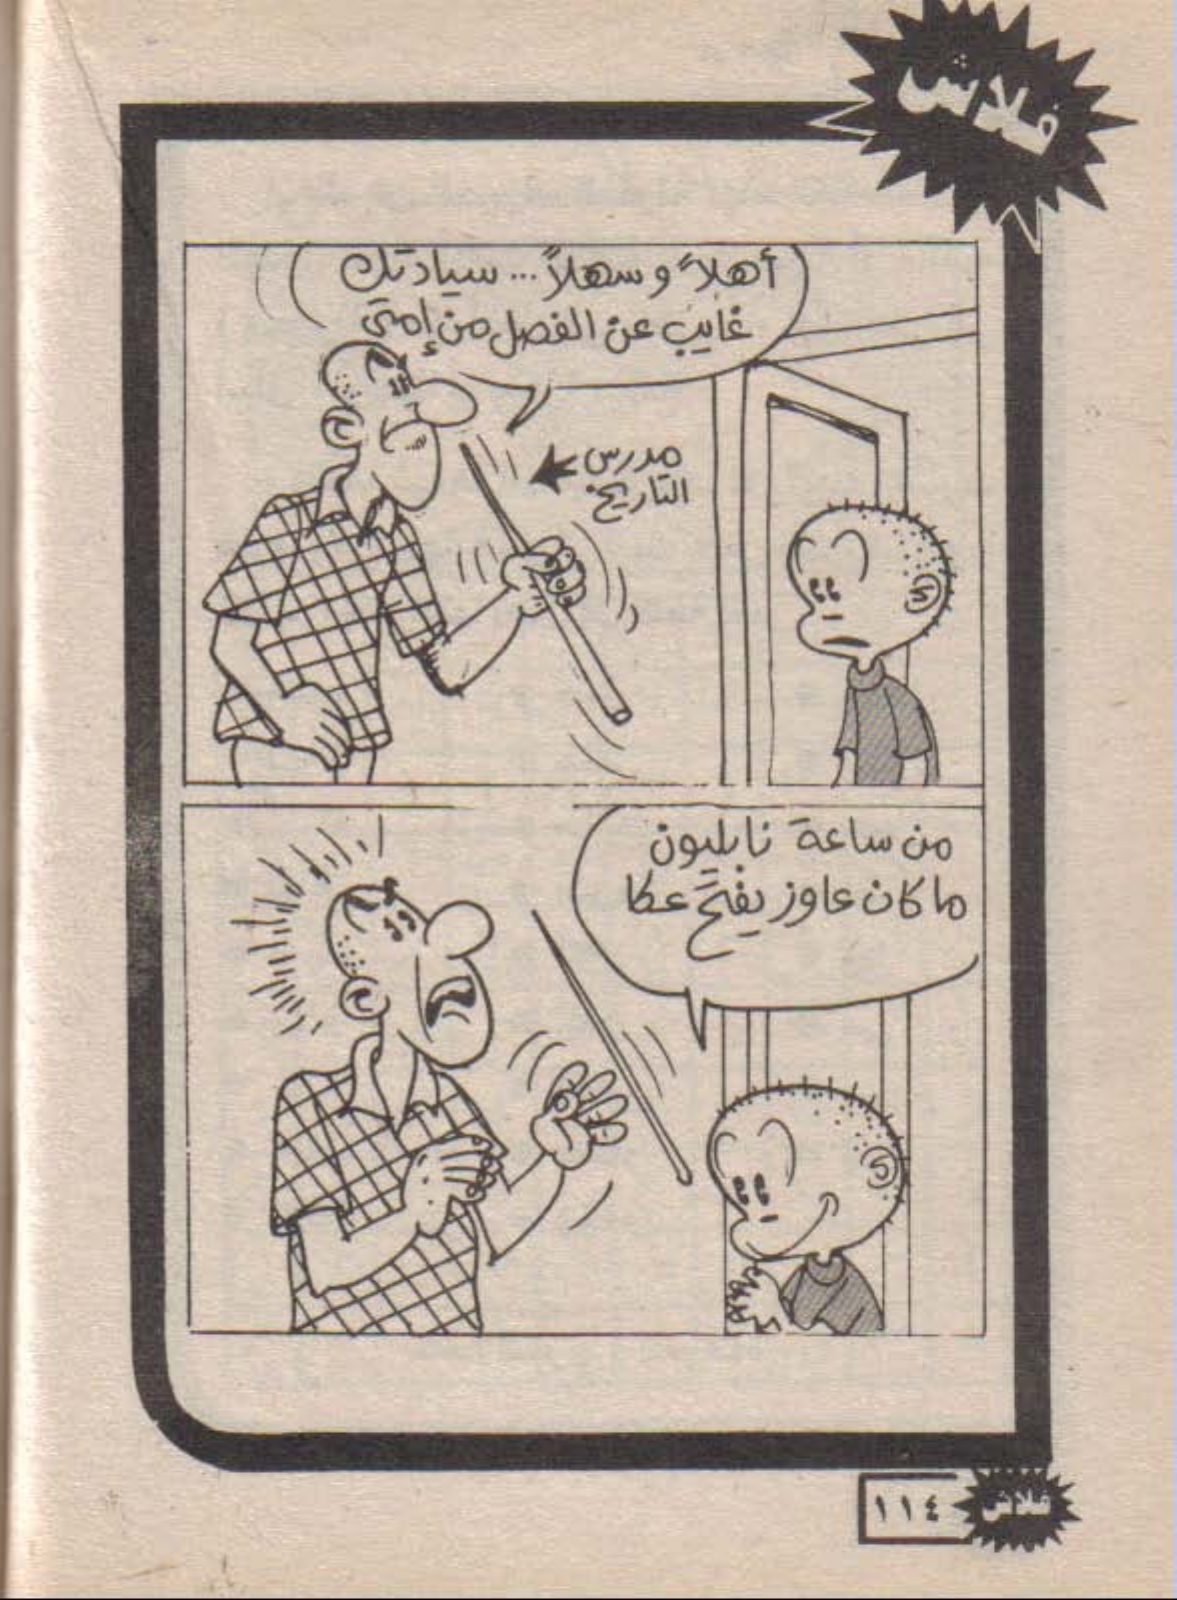 فلاش
أهلاً و سهلاً... سيادتك
غايب عن الفصل من إمتى
مدرس
التاريخ
من ساعة نابليون
ما كان عاوز يفتح عكا
١١٤
فلاش